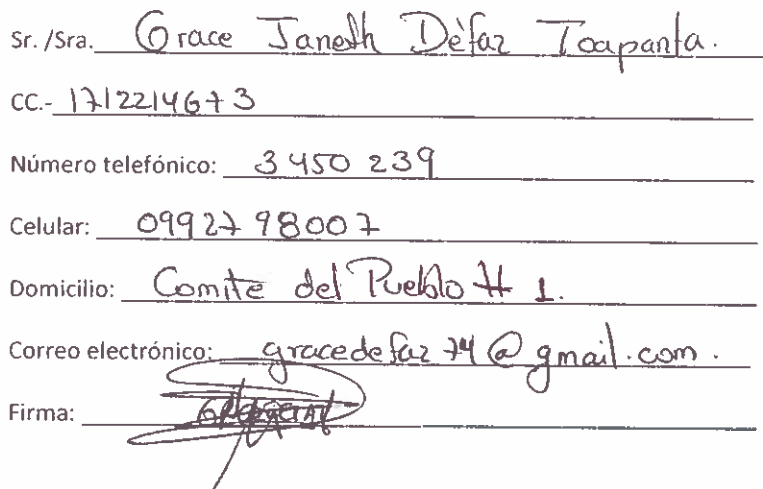 Sr. /Sra. Grace Janeth Dèfaz Toapanta.
CC.- 1712214673
Número telefónico: 3450 239
Celular: 0992798007
Domicilio: Comite del Pueblo # 1.
Correo electrónico: gracedefaz74@gmail.com.
Firma: